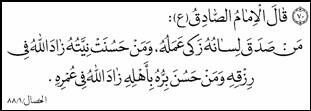 ٧٠ قَالَ الْإِمَامُ الصَّادِقُ (ع):
مَنْ صَدَقَ لِسَانُهُ زَكىٰ عَمَلُهُ، وَمَنْ حَسُنَتْ نِيَّتُهُ زَادَ اللهُ فِي
رِزْقِهِ وَمَنْ حَسُنَ بِرُّهُ بِأَهْلِهِ زَادَ اللهُ فِي عُمْرِهِ.
الخصال/١/٨٨